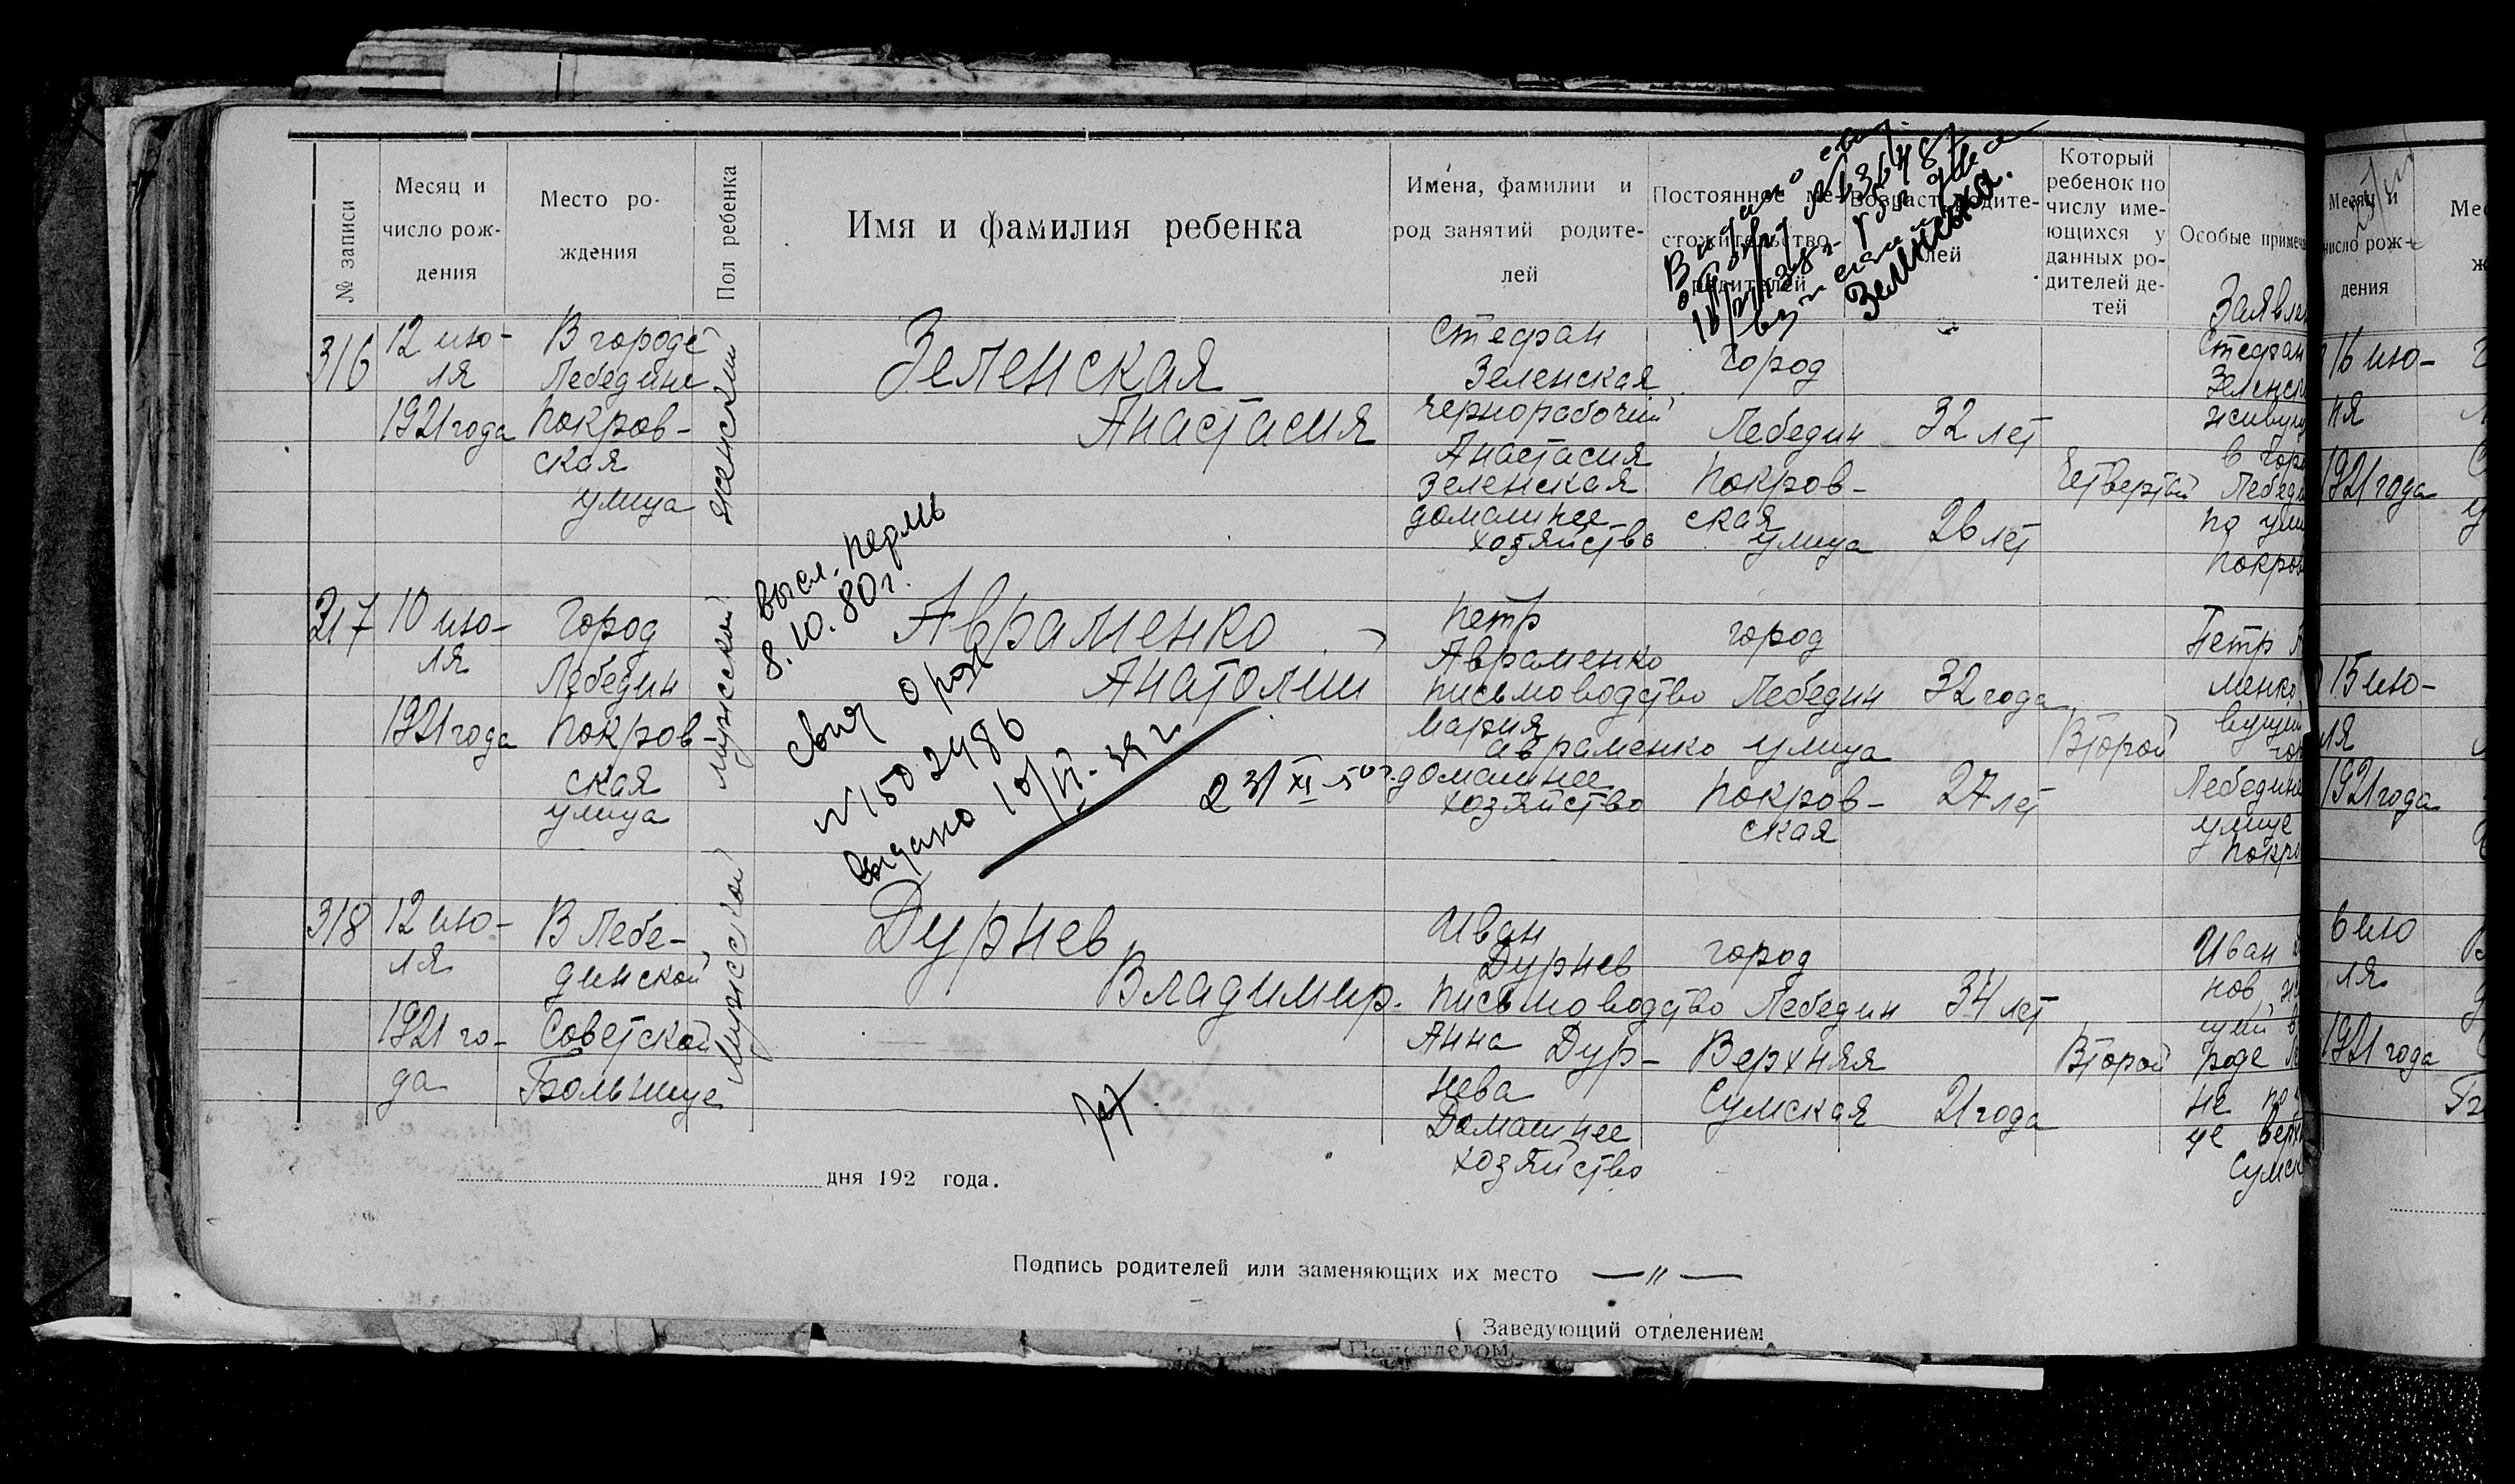 № записи
Месяц и
число рож-
дения
Место ро-
ждения
Пол ребенка
Имя и фамилия ребенка
Имена, фамилии и
род занятий родите-
лей
Постоянное ме-
стожительство
родителей
Возраст родите-
лей
Который
ребенок по
числу име-
ющихся у
данных ро-
дителей де-
тей
Особые примеча
316
12 ию-
ля
1921 года
В городе
Лебедине
Покров-
ская
улица
женский
Зеленская
Анастасия
Стефан
Зеленская
чернорабочий
Анастасия
Зеленская
домашнее
хозяйство
город
Лебедин
Покров-
ская
улица
32 лет
26 лет
Четвертый
Заявлен
Стефан
Зеленск
живущ
в гор
Лебеди
по ули
Покров
317
10 ию-
ля
1921 года
Город
Лебедин
Покров-
ская
улица
мужской
высл. Пермь
8.10.80 г.
Авраменко
Анатолий
свид о рож
№ 1502486
выдано 10/VI-39 г
2 3/XI-50 г.
Петр
Авраменко
письмоводство
Мария
Авраменко
домашнее
хозяйство
город
Лебедин
улица
Покров-
ская
32 года
27 лет
Второй
Петр А
менко
вущий
гор
Лебедине
улице
Покро
318
12 ию-
ля
1921 го-
да
В Лебе-
динской
Советской
Больнице
Мужской
Дурнев
Владимир.
Иван
Дурнев
письмоводство
Анна Дур-
нева
Домашнее
хозяйство
город
Лебедин
Верхняя
Сумская
34 лет
21 года
Второй
Иван
нов, жи
щий в
роде Ле
не по
це Верх
Сумск
дня 192 года.
Подпись родителей или заменяющих их место —〃—
Заведующий отделением
Подотделом
Месяц и
число рож-
дения
16 ию-
ля
1921 года
15 ию-
ля
1921 года
6 ию
ля
1921 года